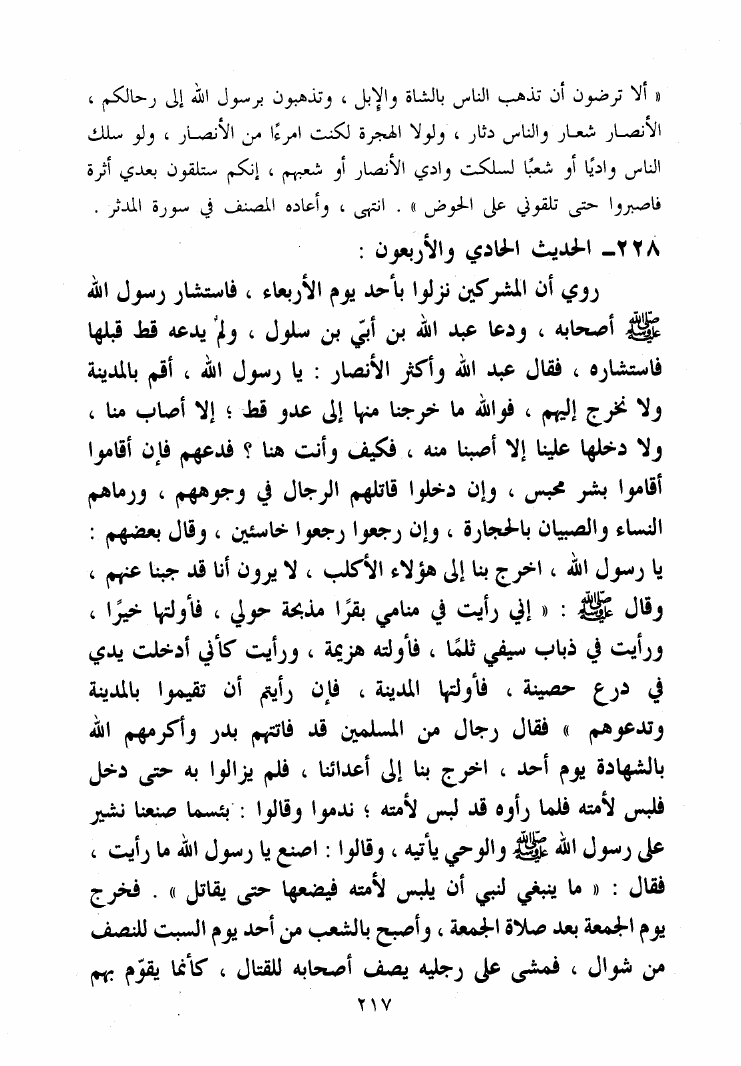 « ألا ترضون أن تذهب الناس بالشاة والإبل ، وتذهبون برسول الله إلى رحالكم ،
الأنصار شعار والناس دثار ، ولولا الهجرة لكنت امرءًا من الأنصار ، ولو سلك
الناس واديًا أو شعبًا لسلكت وادي الأنصار أو شعبهم ، إنكم ستلقون بعدي أثرة
فاصبروا حتى تلقوني على الحوض » . انتهى ، وأعاده المصنف في سورة المدثر .
٢٢٨ـ الحديث الحادي والأربعون :
روي أن المشركين نزلوا بأحد يوم الأربعاء ، فاستشار رسول الله
ﷺ أصحابه ، ودعا عبد الله بن أبيّ بن سلول ، ولم يدعه قط قبلها
فاستشاره ، فقال عبد الله وأكثر الأنصار : يا رسول الله ، أقم بالمدينة
ولا نخرج إليهم ، فوالله ما خرجنا منها إلى عدو قط ؛ إلا أصاب منا ،
ولا دخلها علينا إلا أصبنا منه ، فكيف وأنت هنا ؟ فدعهم فإن أقاموا
أقاموا بشر محبس ، وإن دخلوا قاتلهم الرجال في وجوههم ، ورماهم
النساء والصبيان بالحجارة ، وإن رجعوا رجعوا خاسئين ، وقال بعضهم :
يا رسول الله ، اخرج بنا إلى هؤلاء الأكلب ، لا يرون أنا قد جبنا عنهم ،
وقال ﷺ : « إني رأيت في منامي بقرًا مذبحة حولي ، فأولتها خيرًا ،
ورأيت في ذباب سيفي ثلمًا ، فأولته هزيمة ، ورأيت كأني أدخلت يدي
في درع حصينة ، فأولتها المدينة ، فإن رأيتم أن تقيموا بالمدينة
وتدعوهم » فقال رجال من المسلمين قد فاتتهم بدر وأكرمهم الله
بالشهادة يوم أحد ، اخرج بنا إلى أعدائنا ، فلم يزالوا به حتى دخل
فلبس لأمته فلما رأوه قد لبس لأمته ؛ ندموا وقالوا : بئسما صنعنا نشير
على رسول الله ﷺ والوحي يأتيه ، وقالوا : اصنع يا رسول الله ما رأيت ،
فقال : « ما ينبغي لنبي أن يلبس لأمته فيضعها حتى يقاتل » . فخرج
يوم الجمعة بعد صلاة الجمعة ، وأصبح بالشعب من أحد يوم السبت للنصف
من شوال ، فمشى على رجليه يصف أصحابه للقتال ، كأنما يقوّم بهم
٢١٧